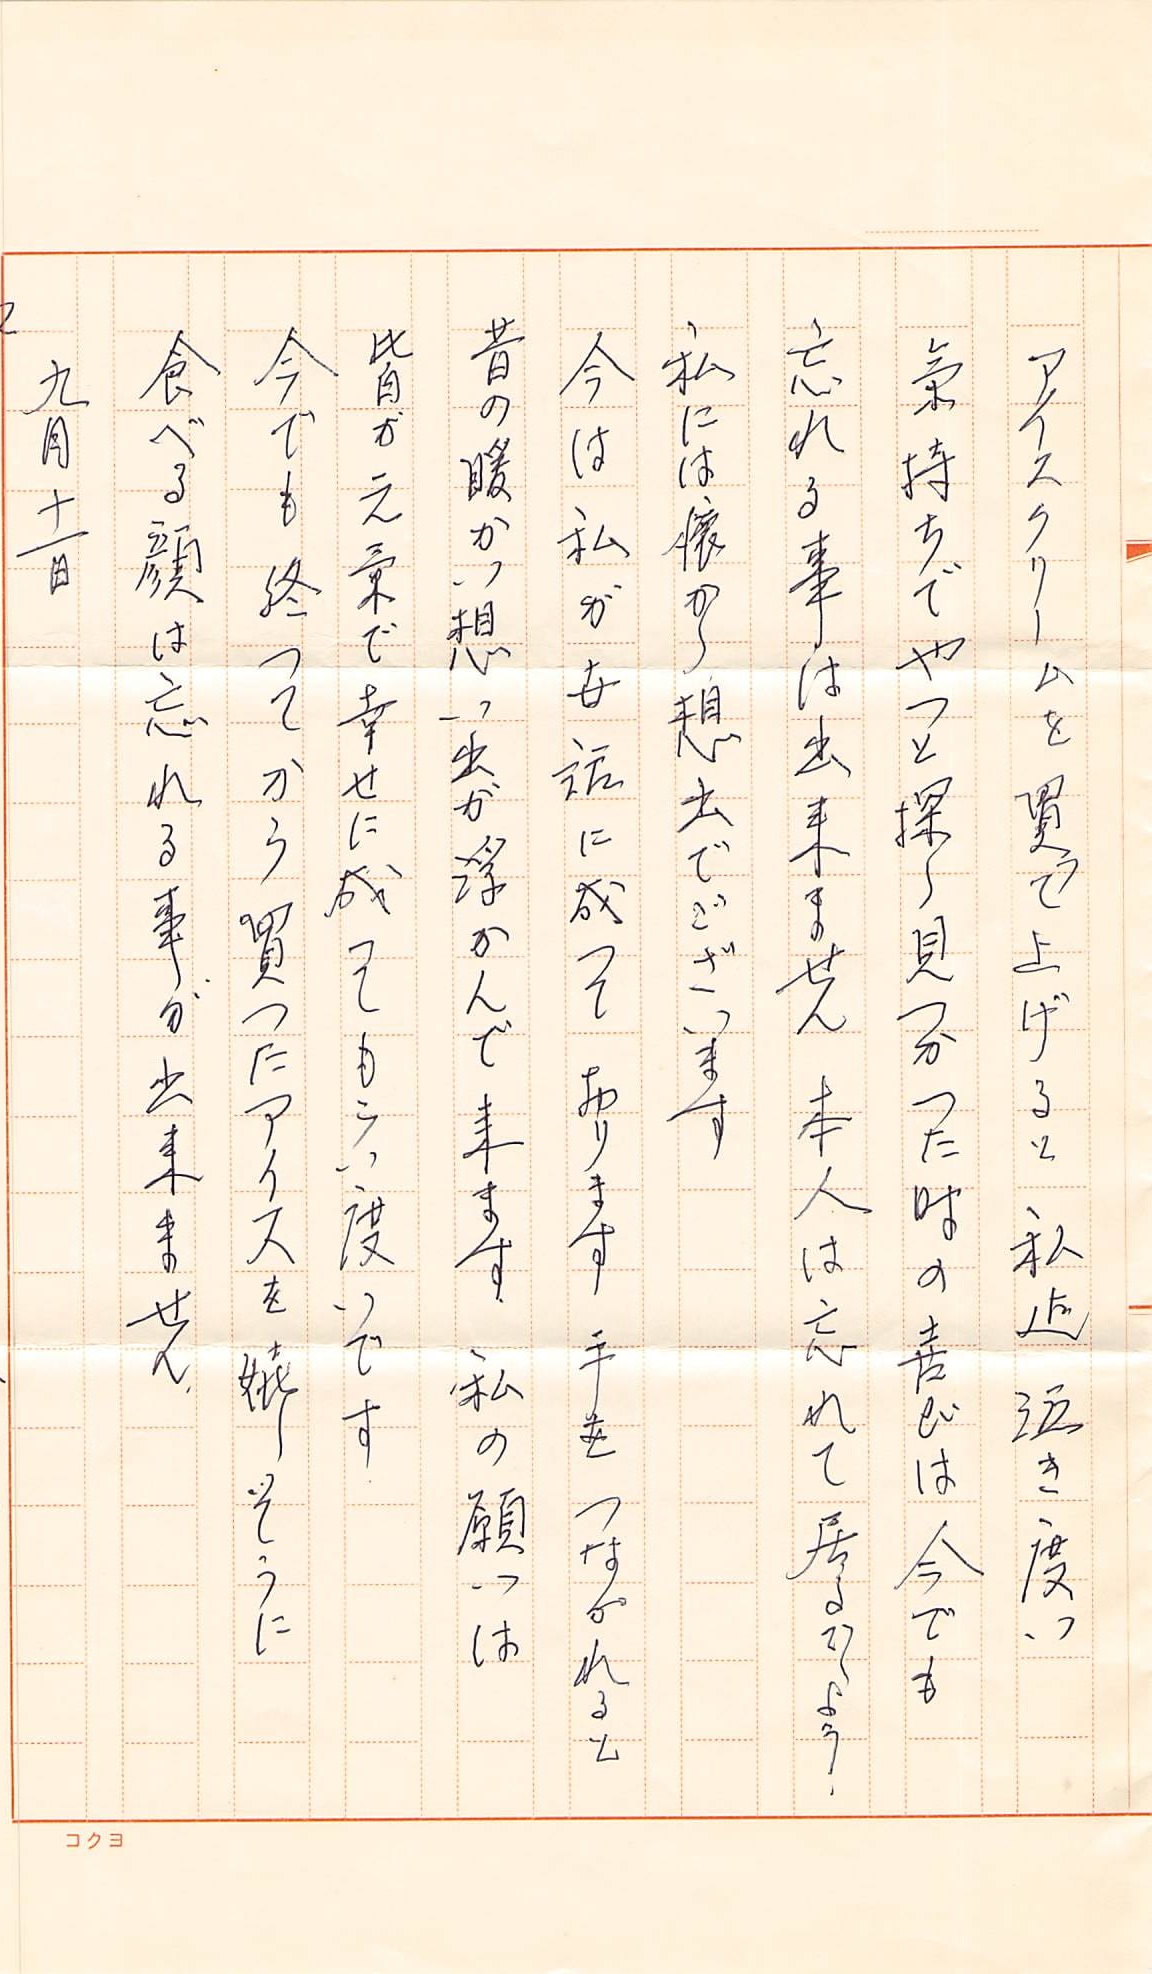 アイスクリームを買って上げると 私迠 泣き度い
氣持ちでやっと探し見つかった時の喜びは今でも
忘れる事は出来ません 本人は忘れて居るでしょう.
私には懐かし想出でございます
今は私が世話に成って おります 手を つながれると
昔の暖かい想い出が浮かんで来ます. 私の願いは
皆が元氣で幸せに成ってもらい度いです.
今でも 終ってから 買ったアイスを 嬉しそうに
食べる顔は忘れる事が出来ません.
九月十一日
コクヨ